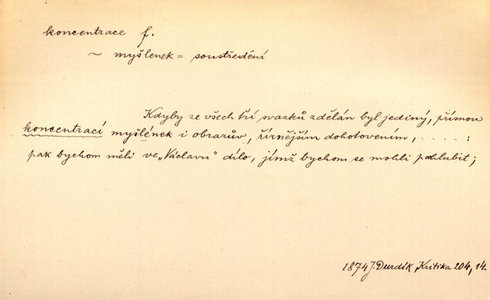 koncentrace f.
~ myšlenek = soustředění
Kdyby ze všech tří svazků zdělán byl jediný, přísnou
koncentrací myšlének i obrazův, říznějším dohotovením, . . . . :
pak bychom měli ve „Václavu“ dílo, jímž bychom se mohli pochlubit;
1874 J. Durdík, Kritika 204, 14.